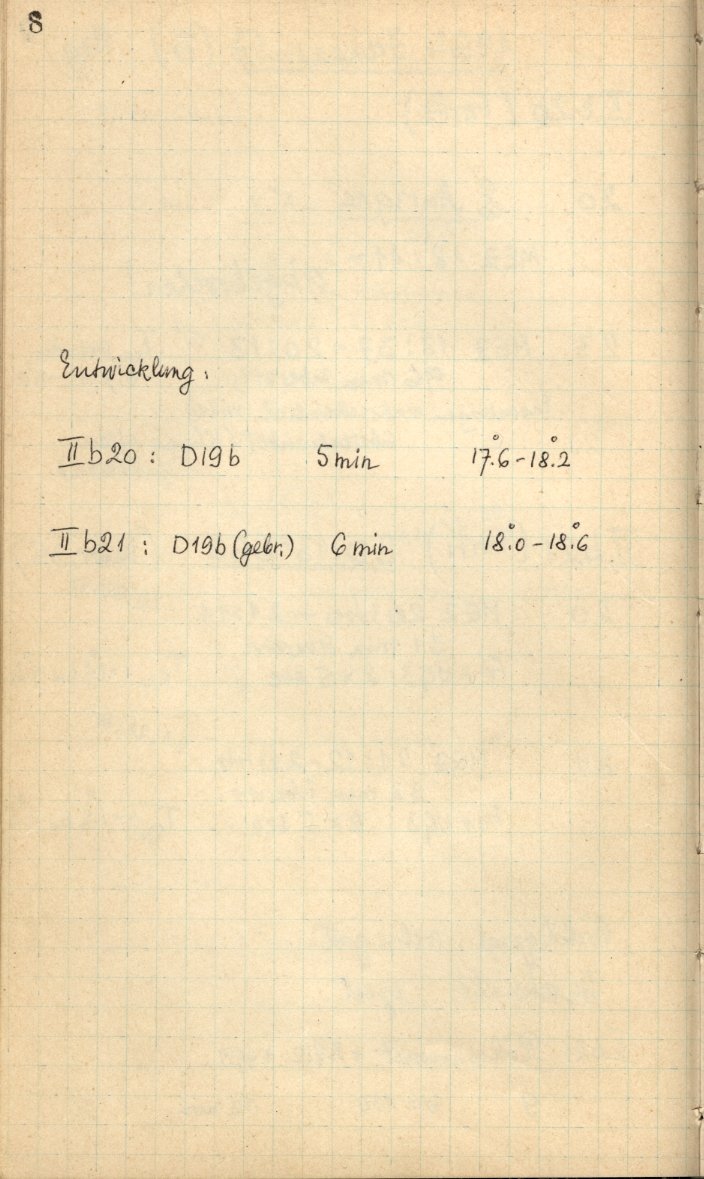 8
Entwicklung:
II b20 : D19b 5 min 17°.6 - 18°.2
II b21 : D19b (gebr.) 6 min 18°.0 - 18°.6